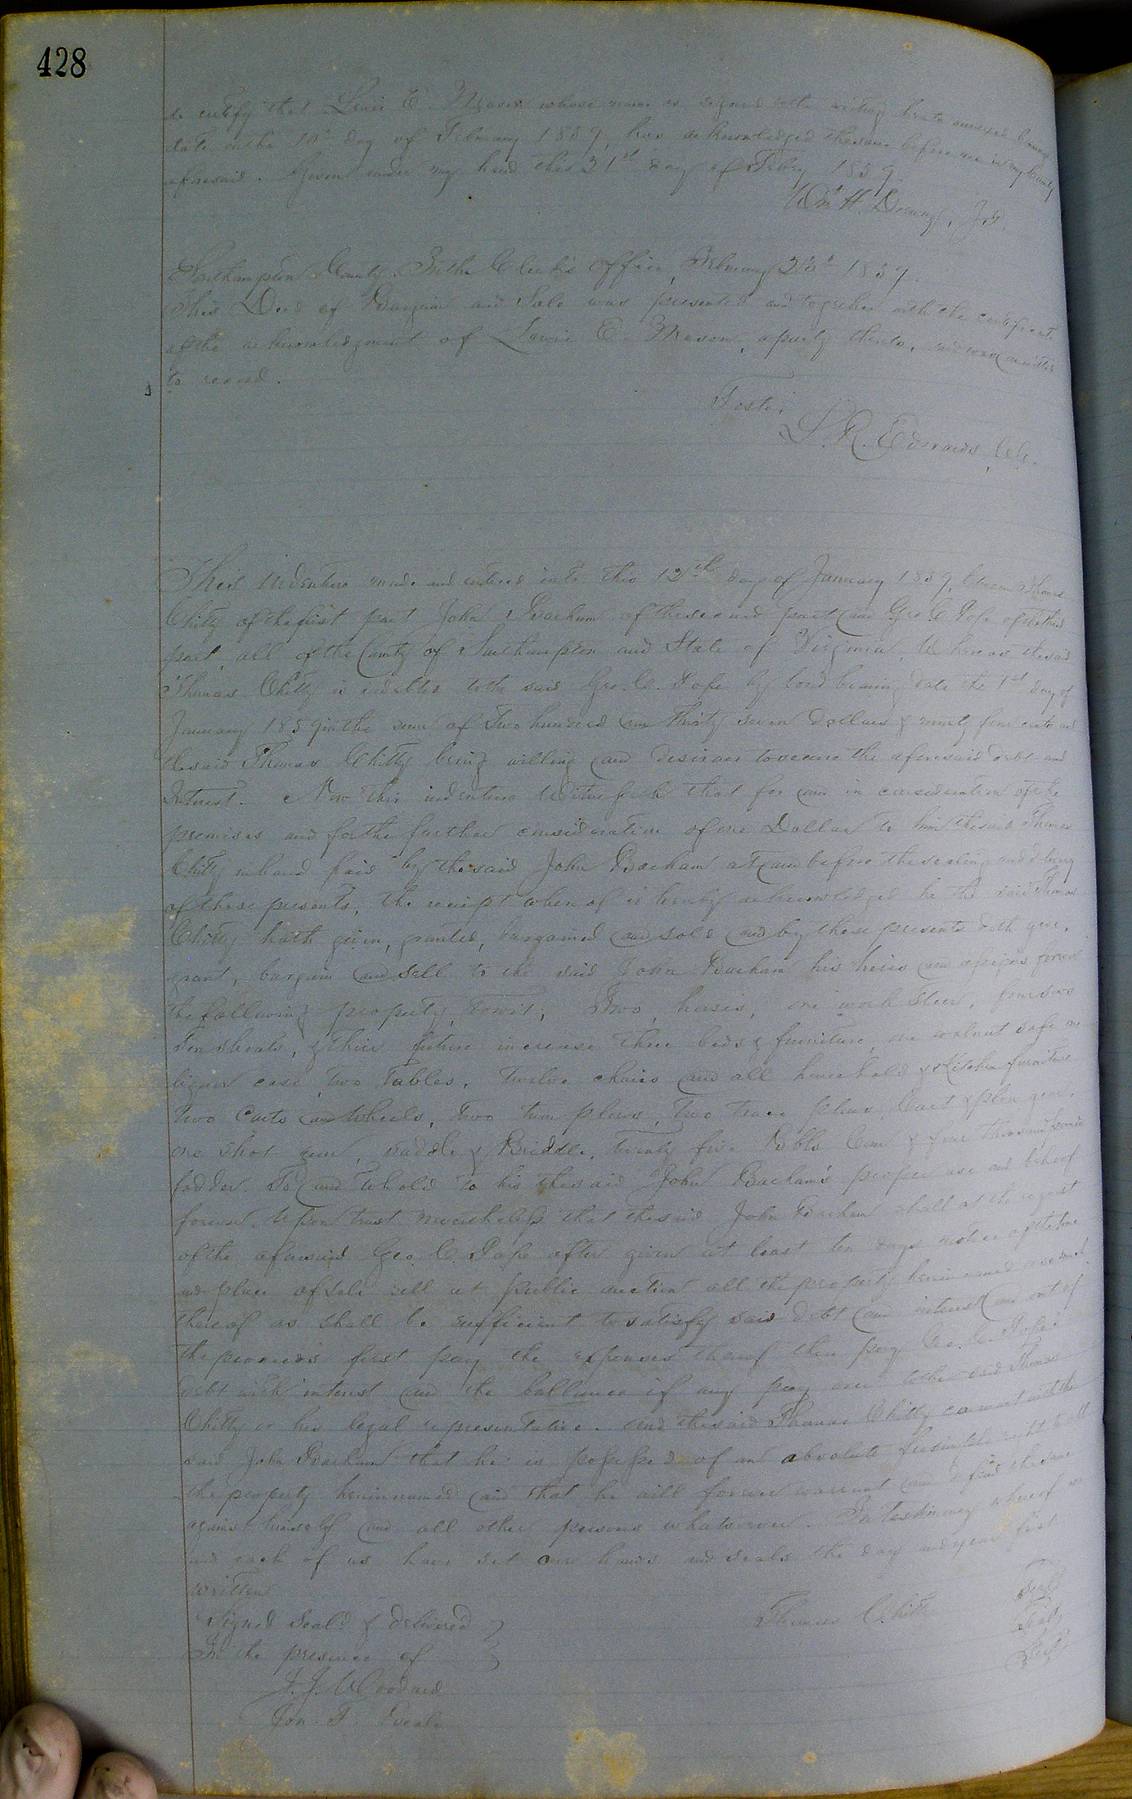 428
do certify that Lewis E. Mason whose name is signed to the writing hereto annexed bearing
date on the 18th day of February 1859, has acknowledged the same before me in my County
aforesaid. Given under my hand this 21st day of Feby 1859.
Wm H. J.P.
Southampton County. In the Clerk's Office, February 1859.
This Deed of Bargain and Sale was presented and together with the certificate
of the acknowledgment of Lewis E. Mason, a party thereto, admitted
to record.
Teste;
L. R. Edwards, C.C.
This Indenture made and entered into this 12th day of January 1859, between Thomas
Chitty of the first part John Barham of the second part and Geo. C. Pope of the third
part, all of the County of Southampton and State of Virginia, Whereas the said
Thomas Chitty is indebted to the said Geo. C. Pope by bond bearing date the 1st day of
January 1859 in the sum of Two hundred and thirty seven dollars & ninety five cents and
the said Thomas Chitty being willing and desirous to secure the aforesaid debt and
Interest. Now this indenture Witnesseth that for and in consideration of the
premises and for the further consideration of one Dollar to him the said Thomas
Chitty in hand paid by the said John Barham at and before the sealing and delivery
of these presents, the receipt whereof is hereby acknowledged he the said Thomas
Chitty hath given, granted, bargained and sold and by these presents doth give,
grant, bargain and sell to the said John Barham his heirs and assigns forever
the following property, towit; Two horses, one work Steer, four sows
Ten shoats, & their future increase three beds & furniture, one walnut safe one
liquor case, two Tables, Twelve chairs and all household & Kitchen furniture
Two Carts and Wheels, Two turn plows, Two trace plows & plow gear,
one Shot gun, saddle & Bridle, twenty five Bbls Corn & five thousand pounds
fodder. To have and to hold to his the said John Barham's proper use and behoof
forever. Upon trust nevertheless that the said John Barham shall at the request
of the aforesaid Geo. C. Pope after given at least ten days notice of the time
and place of Sale sell at public auction all the property herein named or so much
thereof as shall be sufficient to satisfy said debt and interest and out of
the proceeds first pay the expenses thereof then pay Geo. C. Pope's
debt with interest and the ballance if any pay over to the said Thomas
Chitty or his legal representative. And the said Thomas Chitty covenant with the
said John Barham that he is possessed of an absolute feesimple to all
the property herein named and that he will forever warrant and defend the same
against himself and all other persons whatsoever. In testimony whereof we
and each of us have set our hands and seals the day and year first
written
Signed Seald & delivered Thomas Chitty Seal
In the presence of Seal
J. J. Woodard Seal
Jon. T.